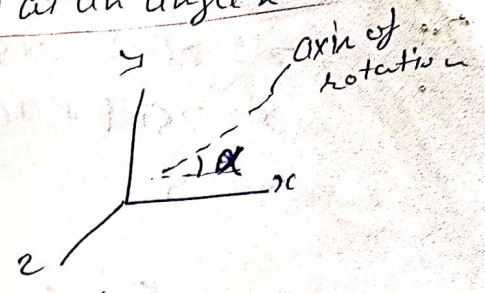 at an angle α
y
axis of
rotation
α
x
z